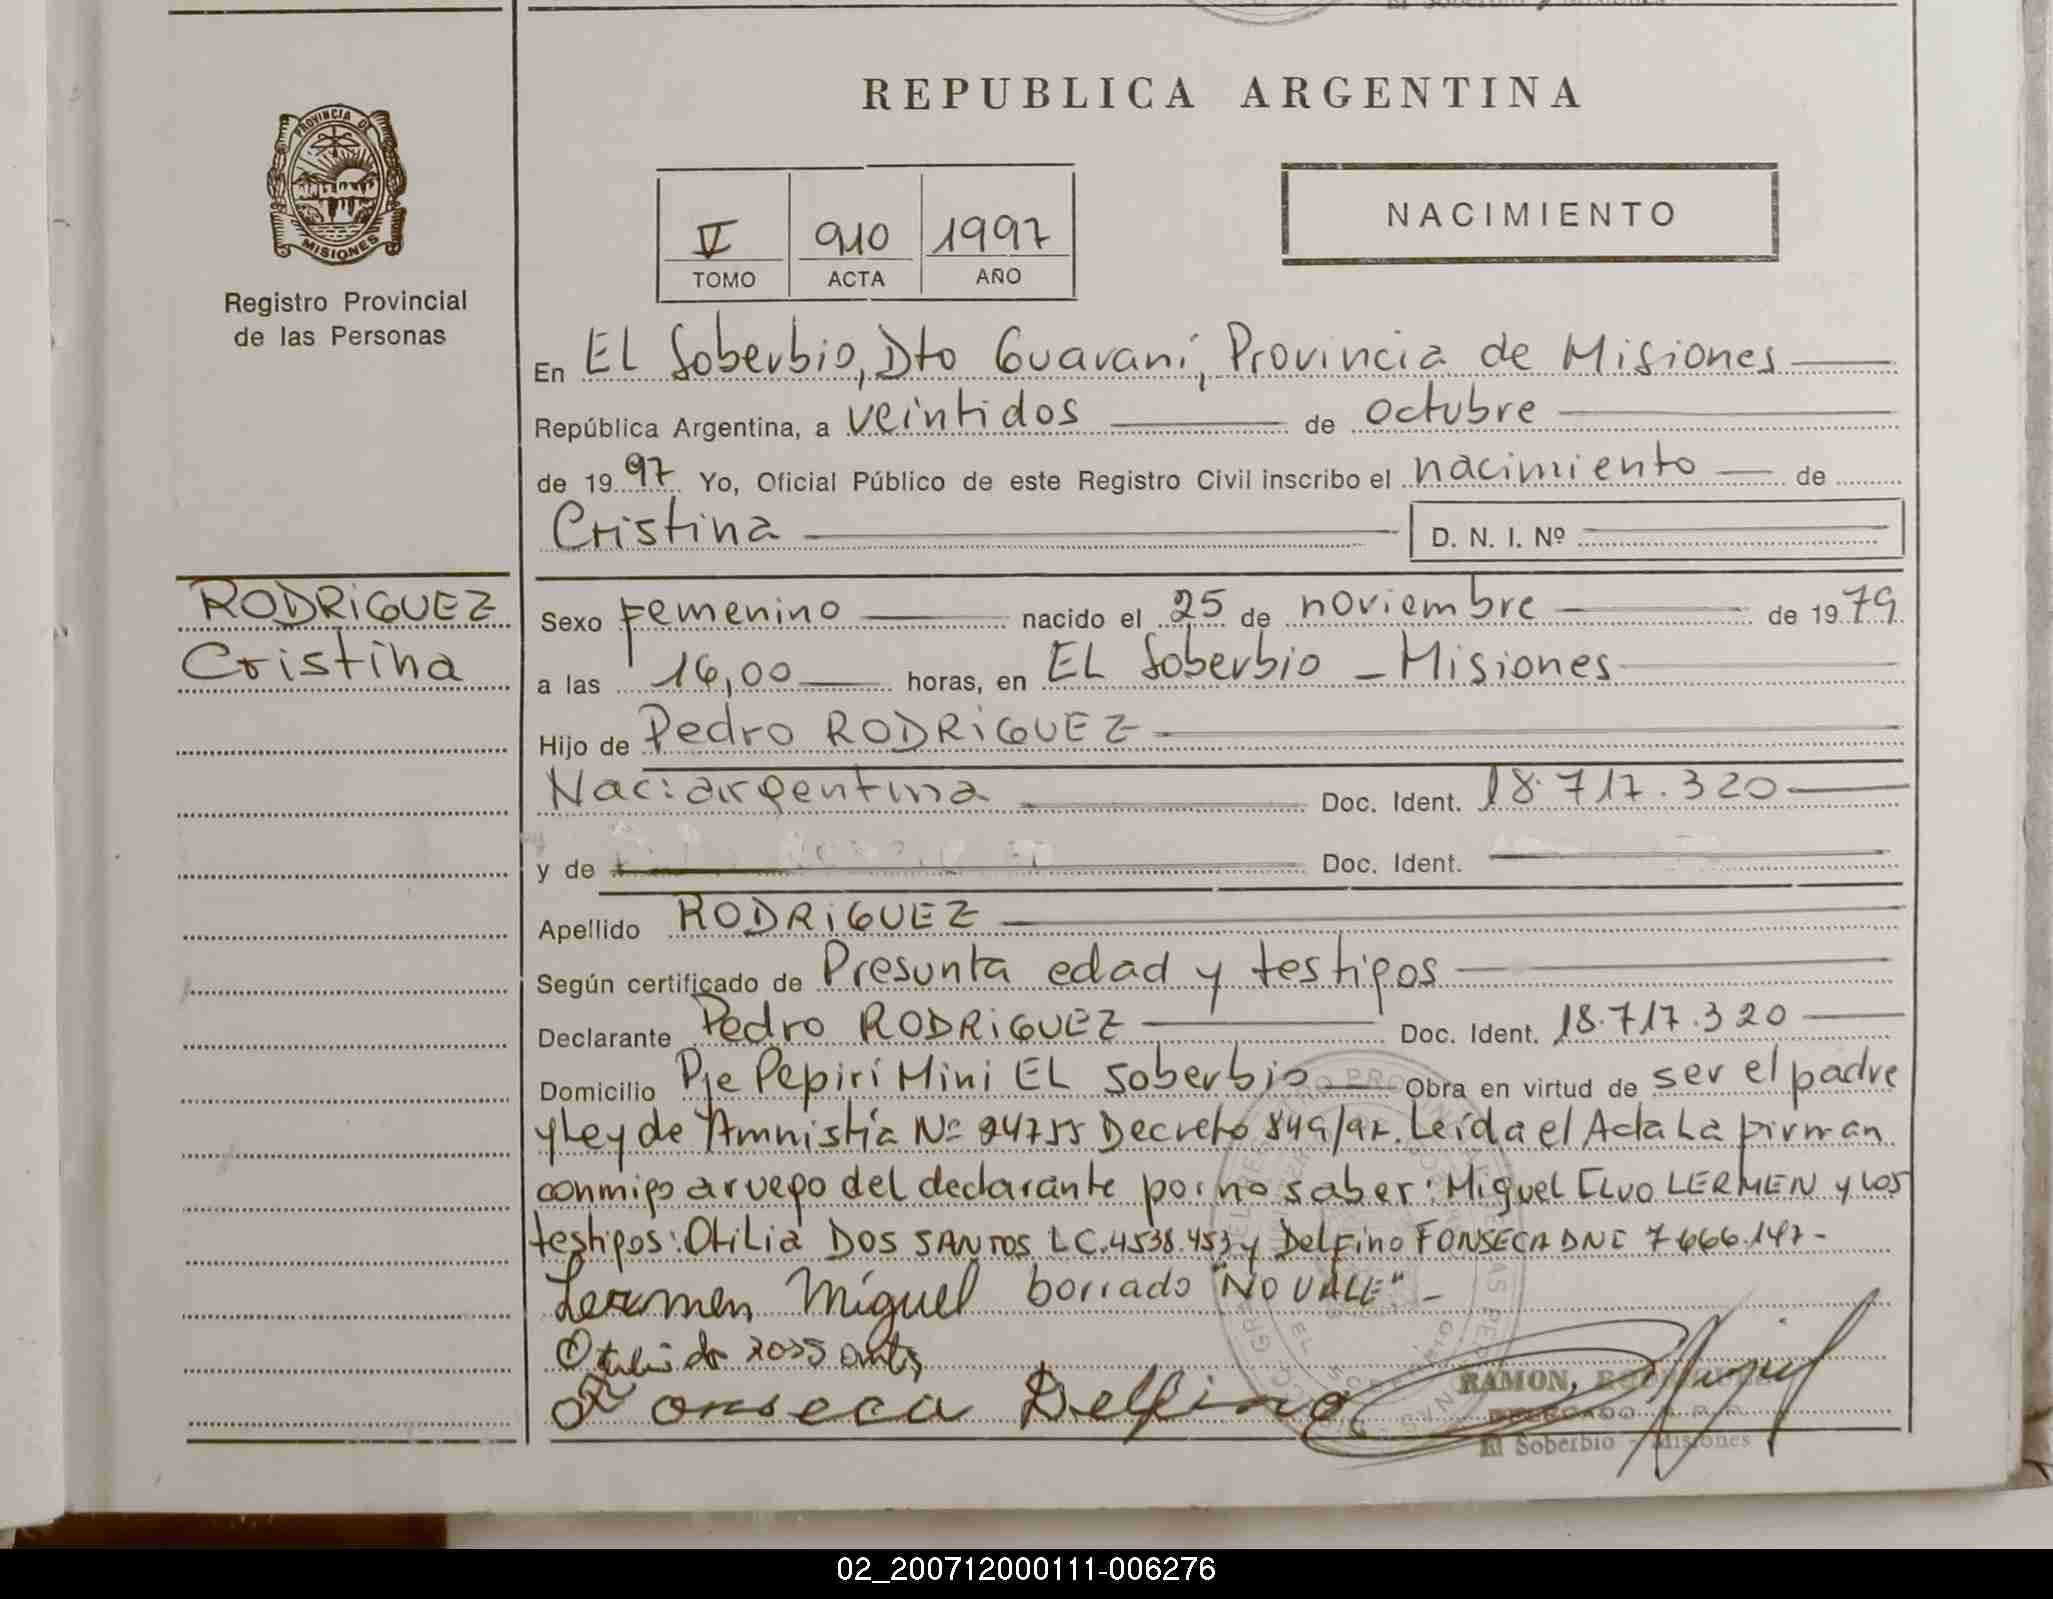 REPUBLICA ARGENTINA
PROVINCIA DE
MISIONES
Registro Provincial
de las Personas
V 910 1997
TOMO ACTA AÑO
NACIMIENTO
En EL Soberbio, Dto Guaraní, Provincia de Misiones
República Argentina, a veintidos de octubre
de 1997 Yo, Oficial Público de este Registro Civil inscribo el nacimiento de
Cristina D. N. I. Nº
RODRIGUEZ
Cristina
Sexo Femenino nacido el 25 de noviembre de 1979
a las 16,00 horas, en EL Soberbio - Misiones
Hijo de Pedro RODRIGUEZ
Nac: argentina Doc. Ident. 18.717.320
y de Doc. Ident.
Apellido RODRIGUEZ
Según certificado de Presunta edad y testigos
Declarante Pedro RODRIGUEZ Doc. Ident. 18.717.320
Domicilio Pje Pepirí Mini EL Soberbio Obra en virtud de ser el padre
y Ley de Amnistía Nº 24755 Decreto 849/97. Leída el Acta La firman
conmigo a ruego del declarante por no saber: Miguel ELVO LERMEN y los
testigos: Otilia DOS SANTOS LC. 4538.453 y Delfino FONSECA DNI 7666.147-
Lermen Miguel borrado "NO VALE" -
Fonseca Delfino
RAMON, RODRIGUEZ
DELEGADO R.P.P.
El Soberbio - Misiones
02_200712000111-006276